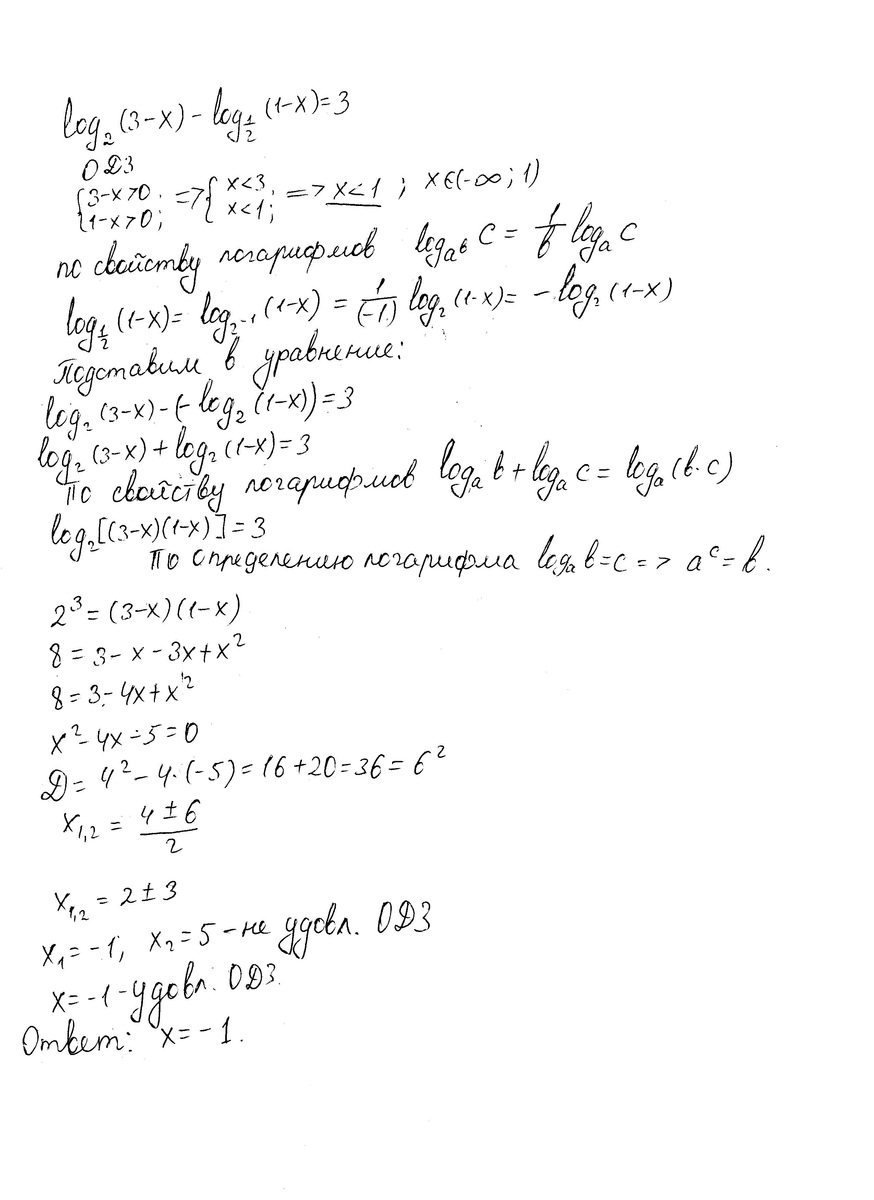 log₂(3-x) - log_{1/2}(1-x)=3
ОДЗ
{3-x>0; 1-x>0; => {x<3; x<1; => x<1 ; x∈(-∞;1)
по свойству логарифмов log_{a^b} c = 1/b log_a c
log_{1/2}(1-x)= log_{2^{-1}}(1-x) = 1/(-1) log₂(1-x)= -log₂(1-x)
Подставим в уравнение:
log₂(3-x)-(-log₂(1-x))=3
log₂(3-x)+log₂(1-x)=3
По свойству логарифмов log_a b + log_a c = log_a(b·c)
log₂[(3-x)(1-x)]=3
По определению логарифма log_a b=c => a^c=b.
2³=(3-x)(1-x)
8=3-x-3x+x²
8=3-4x+x²
x²-4x-5=0
D=4²-4·(-5)=16+20=36=6²
x_{1,2} = (4±6)/2
x_{1,2}=2±3
x₁=-1; x₂=5 -не удовл. ОДЗ
x=-1-удовл. ОДЗ.
Ответ: x=-1.